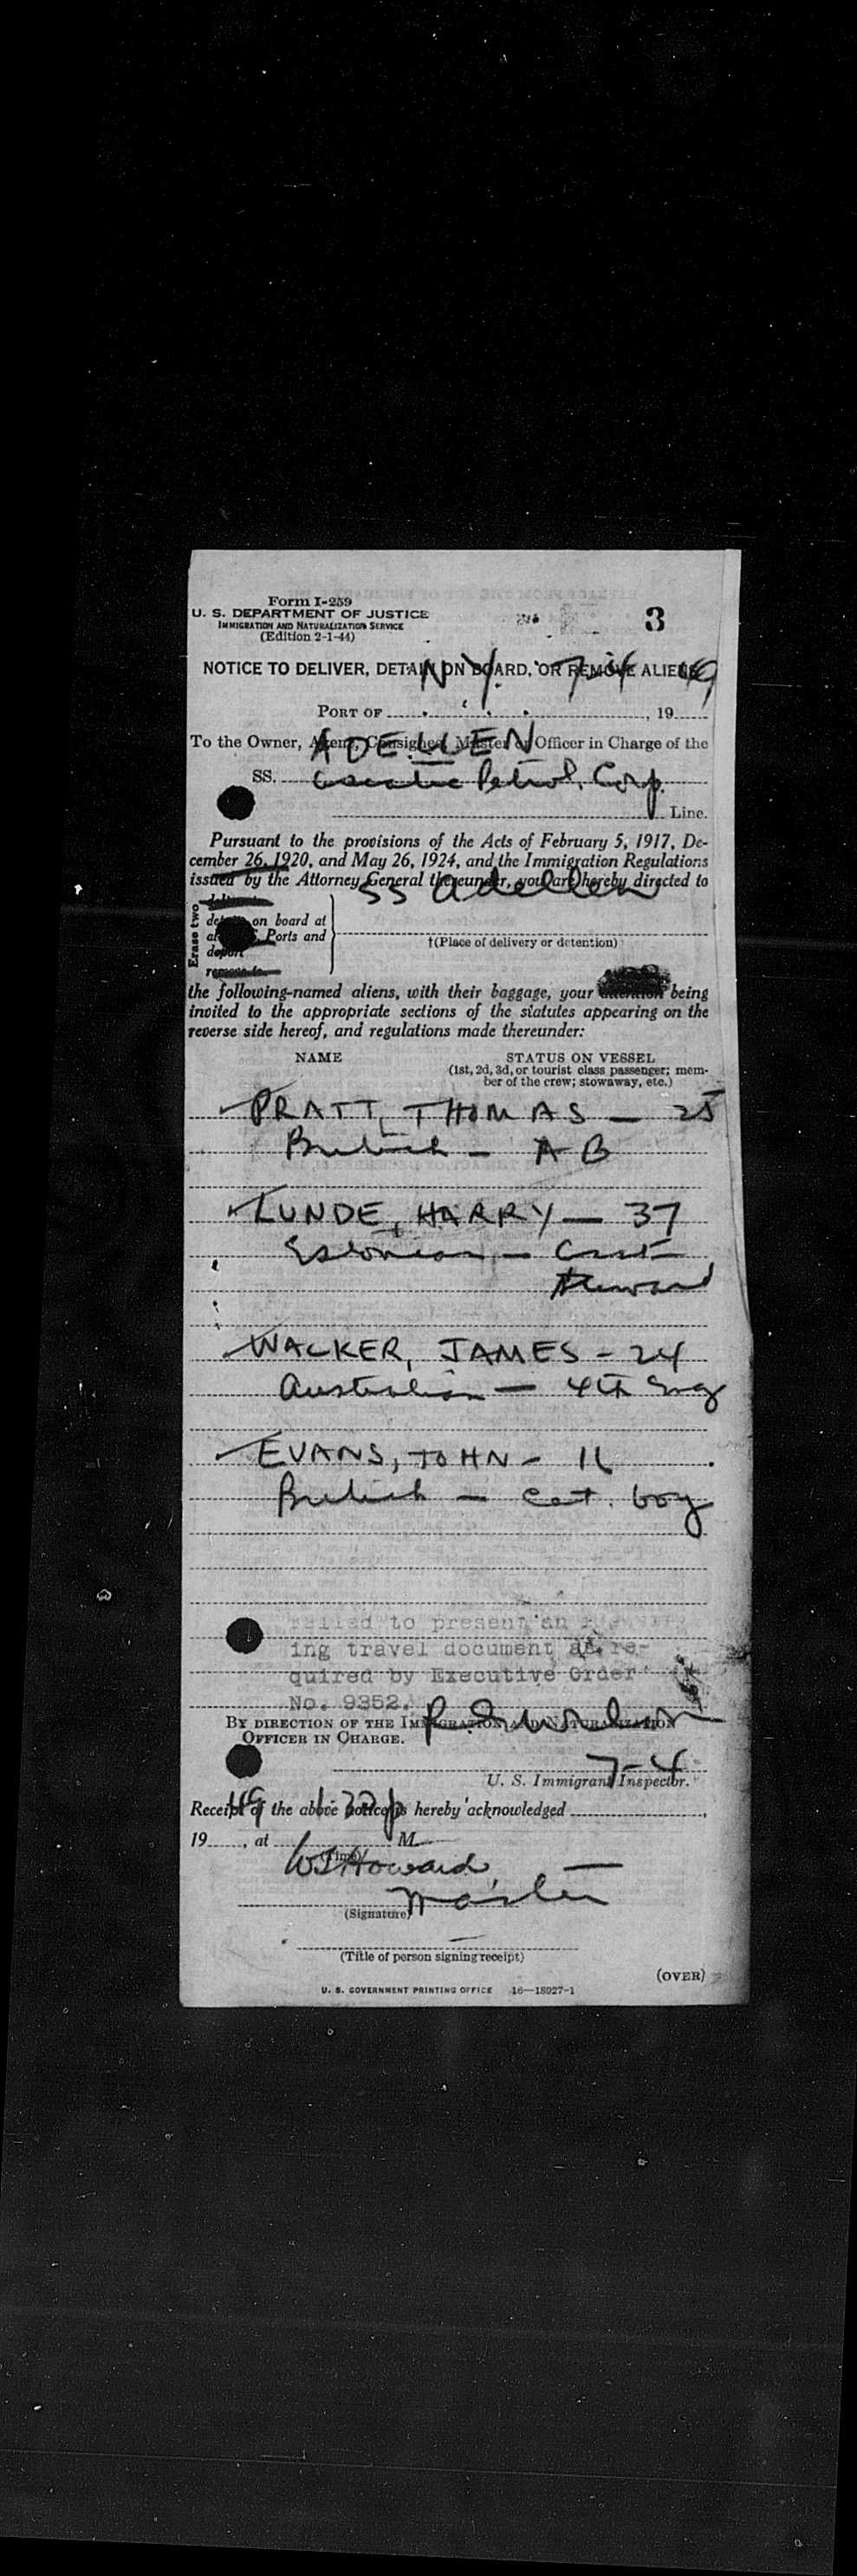 Form I-259
U. S. DEPARTMENT OF JUSTICE
IMMIGRATION AND NATURALIZATION SERVICE
(Edition 2-1-44)
3
NOTICE TO DELIVER, DETAIN ON BOARD, OR REMOVE ALIENS
N.Y. 7-4 49
PORT OF , 19
To the Owner, Agent, Consignee, Master or Officer in Charge of the
ADELLEN
SS. Asiatic Petrol. Corp.
Line.
Pursuant to the provisions of the Acts of February 5, 1917, De-
cember 26, 1920, and May 26, 1924, and the Immigration Regulations
issued by the Attorney General thereunder, you are hereby directed to
SS Adellen
Erase two
detain on board at
Ports and
deport
remove to
†(Place of delivery or detention)
the following-named aliens, with their baggage, your attention being
invited to the appropriate sections of the statutes appearing on the
reverse side hereof, and regulations made thereunder:
NAME STATUS ON VESSEL
(1st, 2d, 3d, or tourist class passenger; mem-
ber of the crew; stowaway, etc.)
PRATT, THOMAS — 25
British — AB
LUNDE, HARRY — 37
Estonian —
Steward
WALKER, JAMES - 24
Australian — 4th Eng
EVANS, JOHN - 16
British — cat. boy
failed to present an
ing travel document as re-
quired by Executive Order
No. 9352.
BY DIRECTION OF THE IMMIGRATION AND NATURALIZATION
OFFICER IN CHARGE.
U. S. Immigrant Inspector.
7-4
Receipt of the above notice is hereby acknowledged ,
49 1 30 p
19 , at M.
(Time)
WS Howard
Master
(Signature)
(Title of person signing receipt)
(OVER)
U. S. GOVERNMENT PRINTING OFFICE 16—18927-1